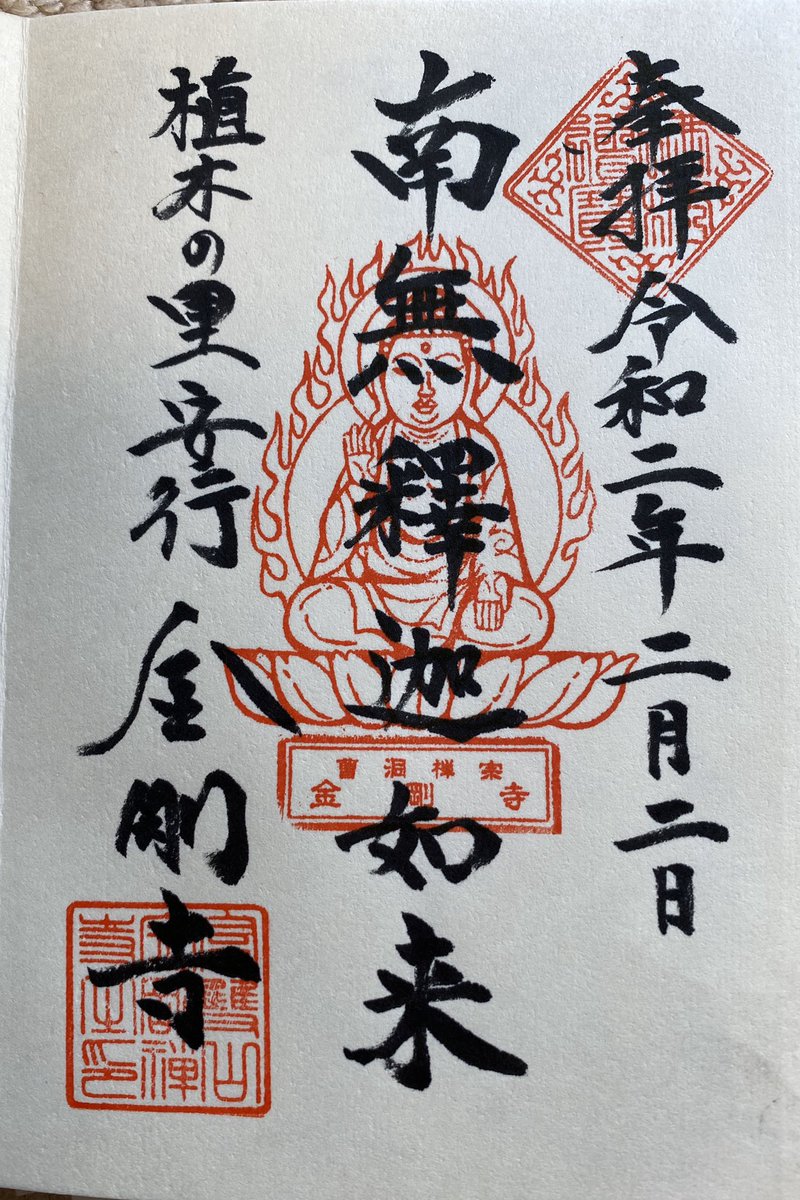 奉拝 令和二年二月二日
南無釋迦如来
曹洞禅宗
金剛寺
植木の里安行 金剛寺